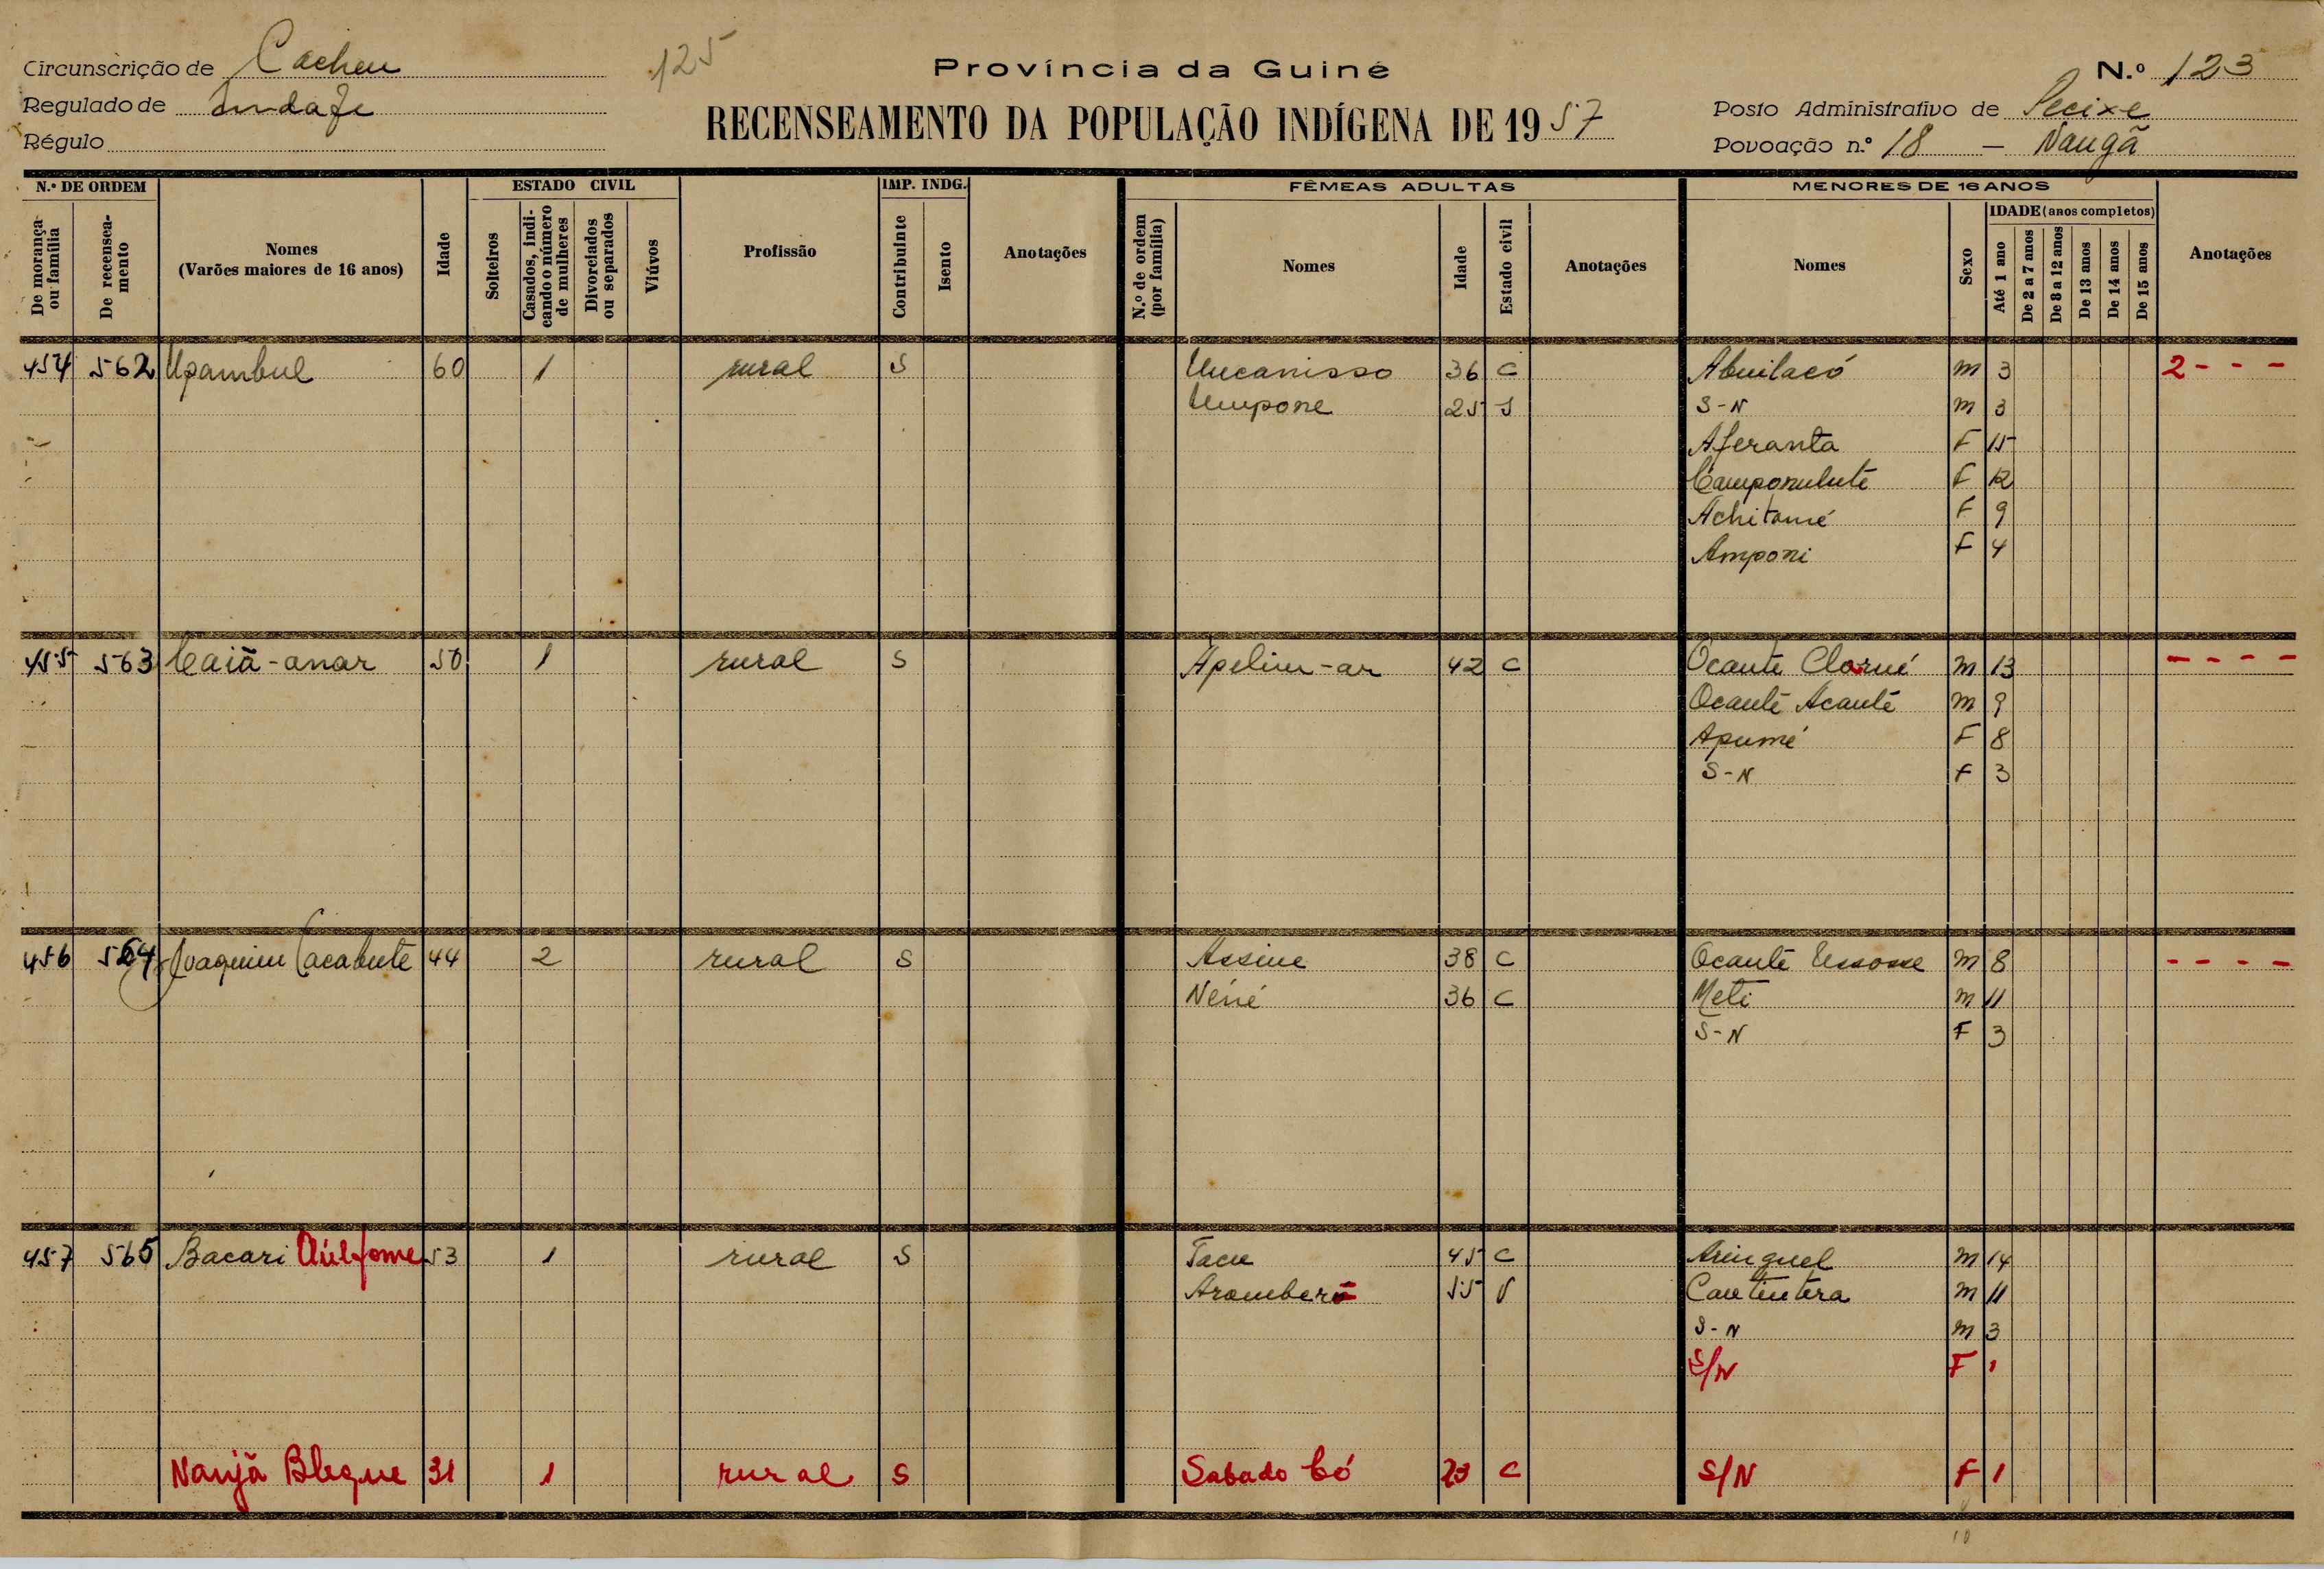 Circunscrição de Cacheu
125
Província da Guiné
N.º 123
Regulado de
RECENSEAMENTO DA POPULAÇÃO INDÍGENA DE 1957
Posto Administrativo de Pecixe
Régulo
Povoação n.º 18 - Naugã
N.º DE ORDEM
ESTADO CIVIL
IMP. INDG.
FÊMEAS ADULTAS
MENORES DE 16 ANOS
De morança ou família
De recenseamento
Nomes
(Varões maiores de 16 anos)
Idade
Solteiros
Casados, indicando o número de mulheres
Divorciados ou separados
Viúvos
Profissão
Contribuinte
Isento
Anotações
N.º de ordem (por família)
Nomes
Idade
Estado civil
Anotações
Nomes
Sexo
IDADE (anos completos)
Até 1 ano
De 2 a 7 anos
De 8 a 12 anos
De 13 anos
De 14 anos
De 15 anos
Anotações
454 562 Upambul 60 1 rural S Uucanisso 36 C Abuilacó m 3 2 - - -
Umpone 25 S S-N m 3
Aferanta F 15
Campombute F 12
Achitamé F 9
Amponi F 4
455 563 Caiã-anar 50 1 rural S Apelim-ar 42 C Ocante m 13 - - - -
Ocante Acanté m 9
Apumé F 8
S-N F 3
456 564 Joaquim Cacabute 44 2 rural S Assine 38 C Ocante Ussosse m 8 - - - -
Néné 36 C Meti m 11
S-N F 3
457 565 Bacari 53 1 rural S Tacu 45 C Aringuel m 14
55 V Cautintera m 11
S-N m 3
S/N F 1
Nanjã Bleque 31 1 rural S Sabado Có 23 C S/N F 1